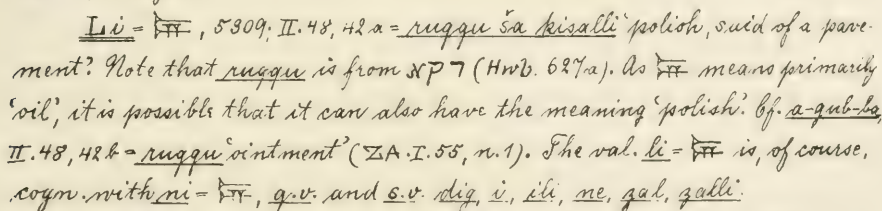 Li = 𒉌, 5309; II. 48, 42 a = ruqqu ša kisalli 'polish, said of a pave-
ment? Note that ruqqu is from רקא (Hwb. 627a). As 𒉌 means primarily
'oil', it is possible that it can also have the meaning 'polish'. Cf. a-gub-ba,
II. 48, 42 b = ruqqu 'ointment' (ZA. I. 55, n. 1). The val. li = 𒉌 is, of course,
cogn. with ni = 𒉌, q.v. and s.v. dig, i, ili, ne, zal, zalli.